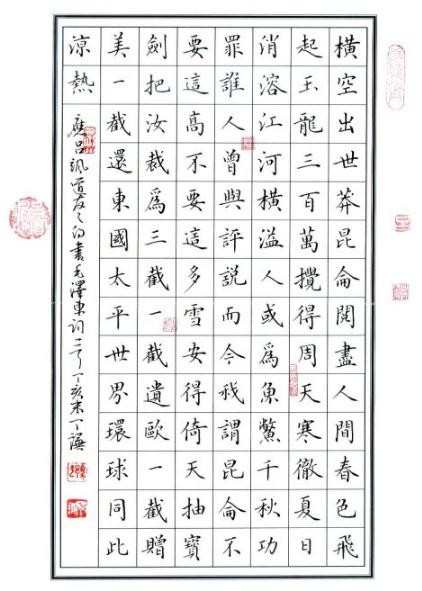 橫空出世莽昆侖閱盡人間春色飛
起玉龍三百萬攪得周天寒徹夏日
消溶江河橫溢人或為魚鱉千秋功
罪誰人曾與評說而今我謂昆侖不
要這高不要這多雪安得倚天抽寶
劍把汝裁為三截一截遺歐一截贈
美一截還東國太平世界環球同此
涼熱
應呂道友之書毛澤東詞丁亥